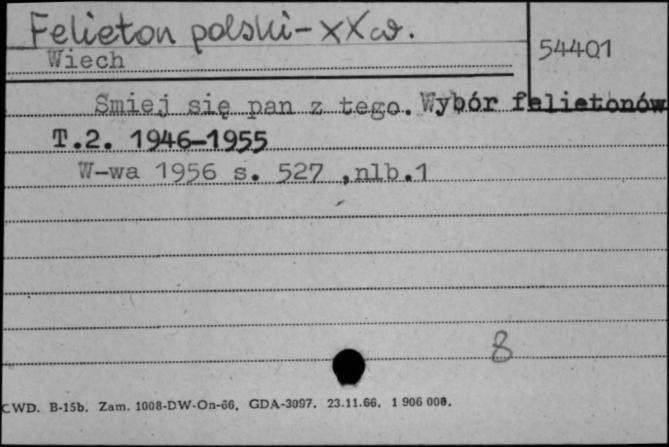 Felieton polski - XX w.
54401
Wiech
Śmiej się pan z tego. Wybór felietonów
T.2. 1946-1955
W-wa 1956 s. 527 ,nlb.1
8
CWD. B-15b. Zam. 1008-DW-On-66, GDA-3097. 23.11.66. 1 906 000.